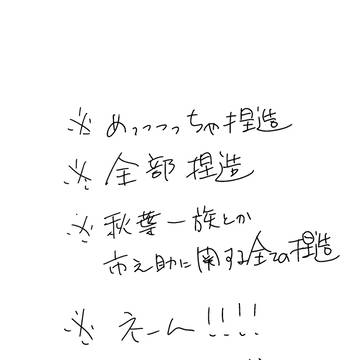 ※めっっっっちゃ捏造
※全部捏造
※秋葉一族とか
市之助に関する全ての捏造
※えーん!!!!